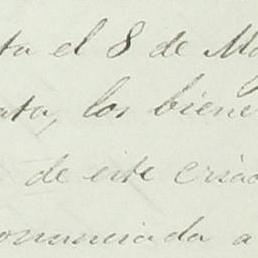 ta el 8 de Ma
ata, los biene
de este criad
onunciada a